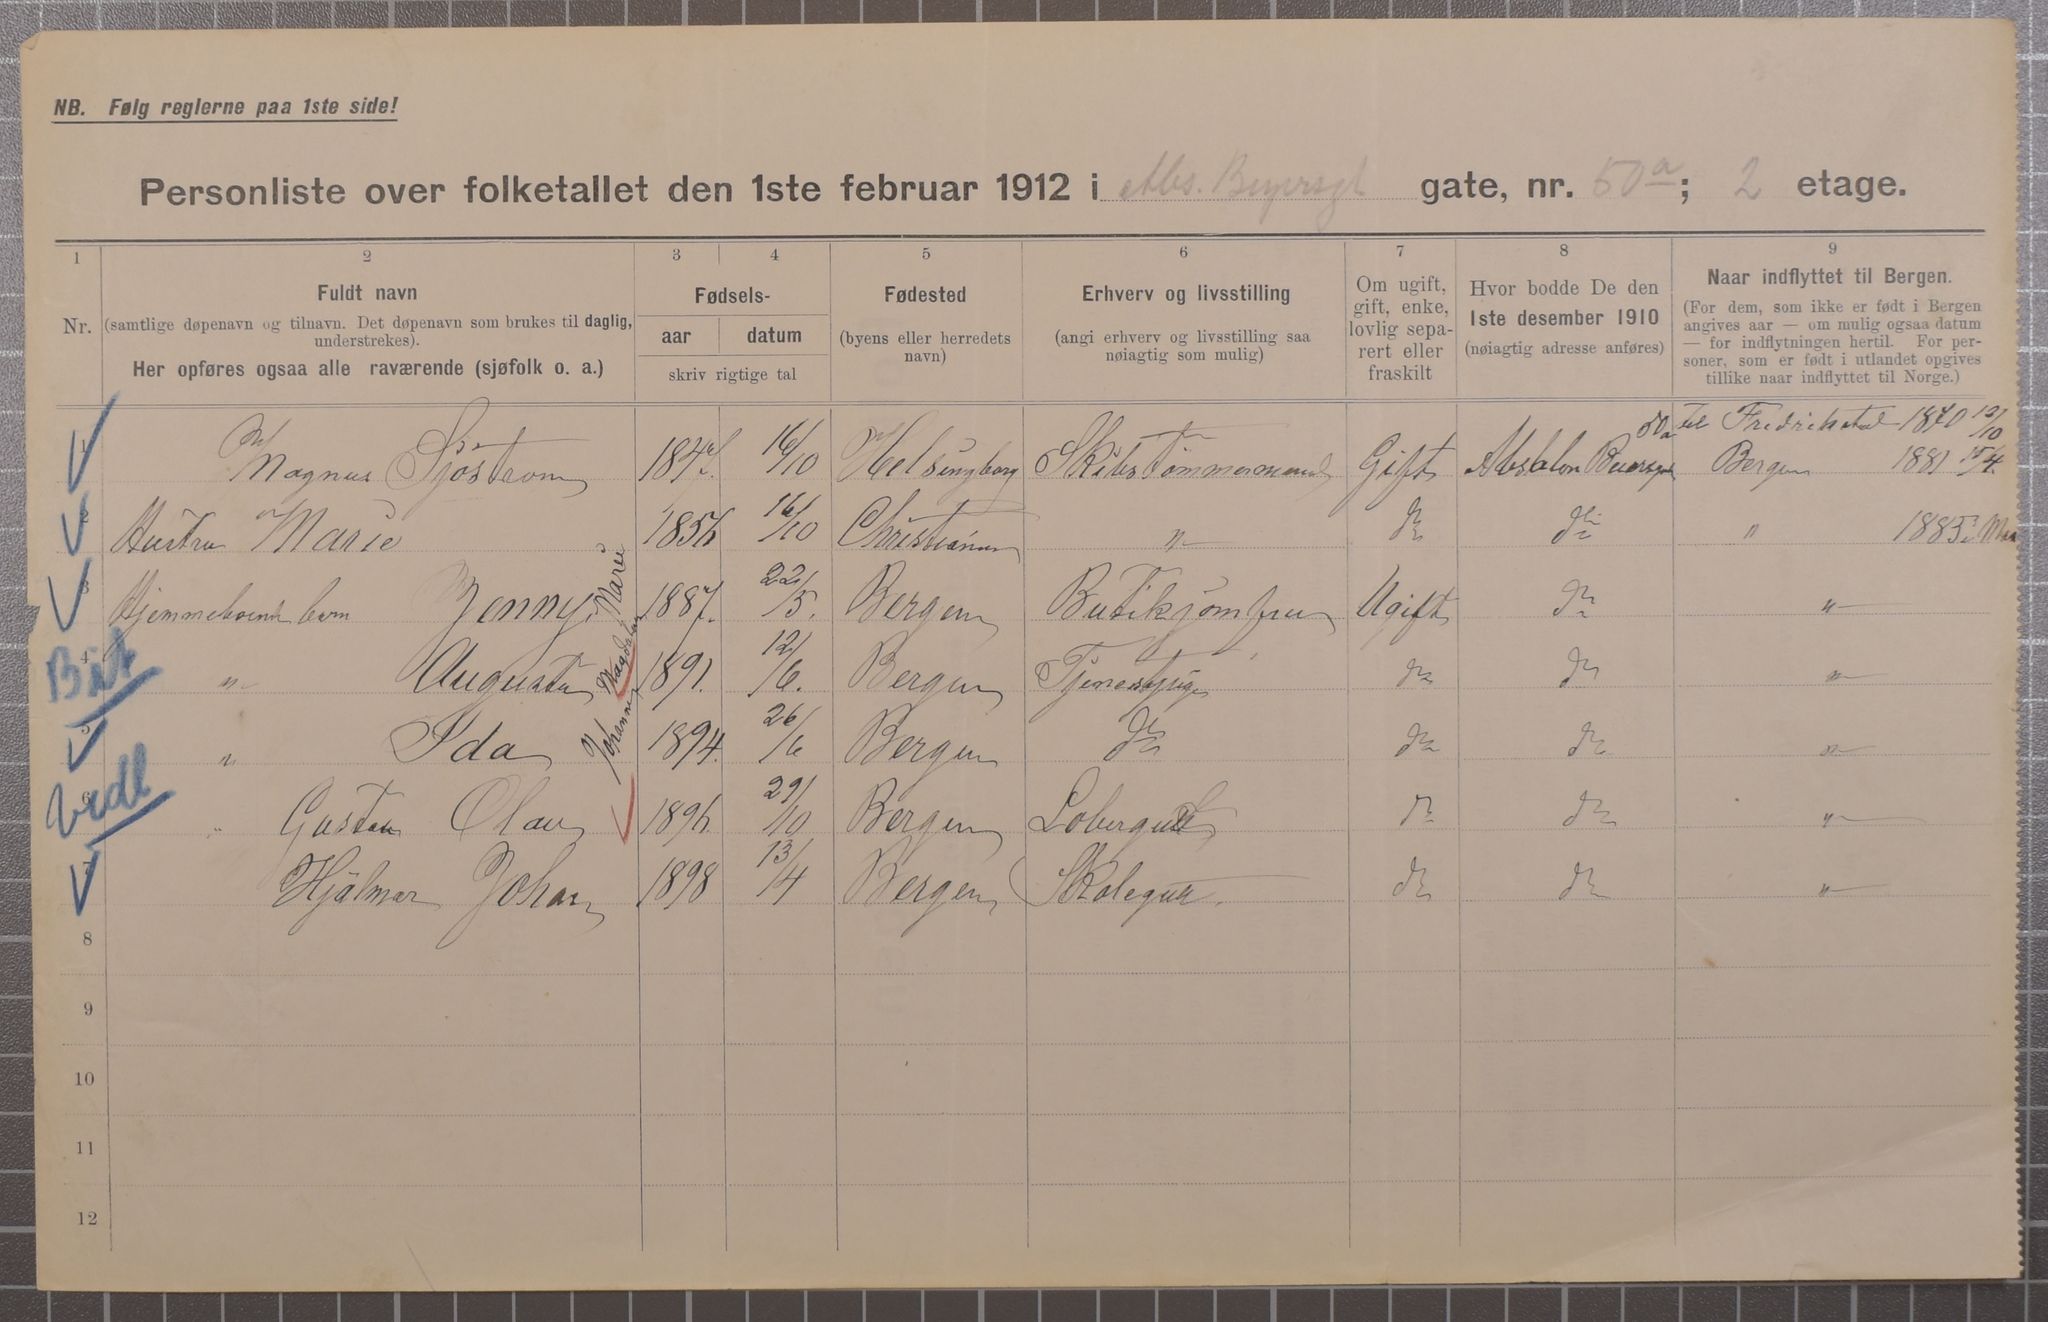 NB. Følg reglerne paa 1ste side!
Personliste over folketallet den 1ste februar 1912 i Abs. Beyersgt gate, nr. 50a; 2 etage.
1 2 3 4 5 6 7 8 9
Nr.
Fuldt navn
(samtlige døpenavn og tilnavn. Det døpenavn som brukes til daglig, understrekes).
Her opføres ogsaa alle raværende (sjøfolk o. a.)
Fødsels-
aar
datum
skriv rigtige tal
Fødested
(byens eller herredets
navn)
Erhverv og livsstilling
(angi erhverv og livsstilling saa
nøiagtig som mulig)
Om ugift,
gift, enke,
lovlig sepa-
rert eller
fraskilt
Hvor bodde De den
1ste desember 1910
(nøiagtig adresse anføres)
Naar indflyttet til Bergen.
(For dem, som ikke er født i Bergen
angives aar — om mulig ogsaa datum
— for indflytningen hertil. For per-
soner, som er født i utlandet opgives
tillike naar indflyttet til Norge.)
50a til Fredrikstad 1870 13/10
1 Magnus Sjöström 1847. 16/10 Helsingborg Skibstømmermand Gift Absalon Beiersgt Bergen 1881 15/4
2 Hustru Marie 1856 16/10 Christiania " do do " 1885 i Mai
3 Hjemmeboende barn Jenny Marie 1887. 22/5. Bergen Butikjomfru Ugift do "
4 " Augusta Magdalen 1891. 12/6. Bergen Tjenestpige do do "
5 " Ida Johanne 1894. 26/6 Bergen do do do "
6 " Gustav Olav 1896 29/10 Bergen Løbergut do do "
7 Hjälmar Johan 1898 13/4 Bergen Skolegut. do do "
8
9
10
11
12